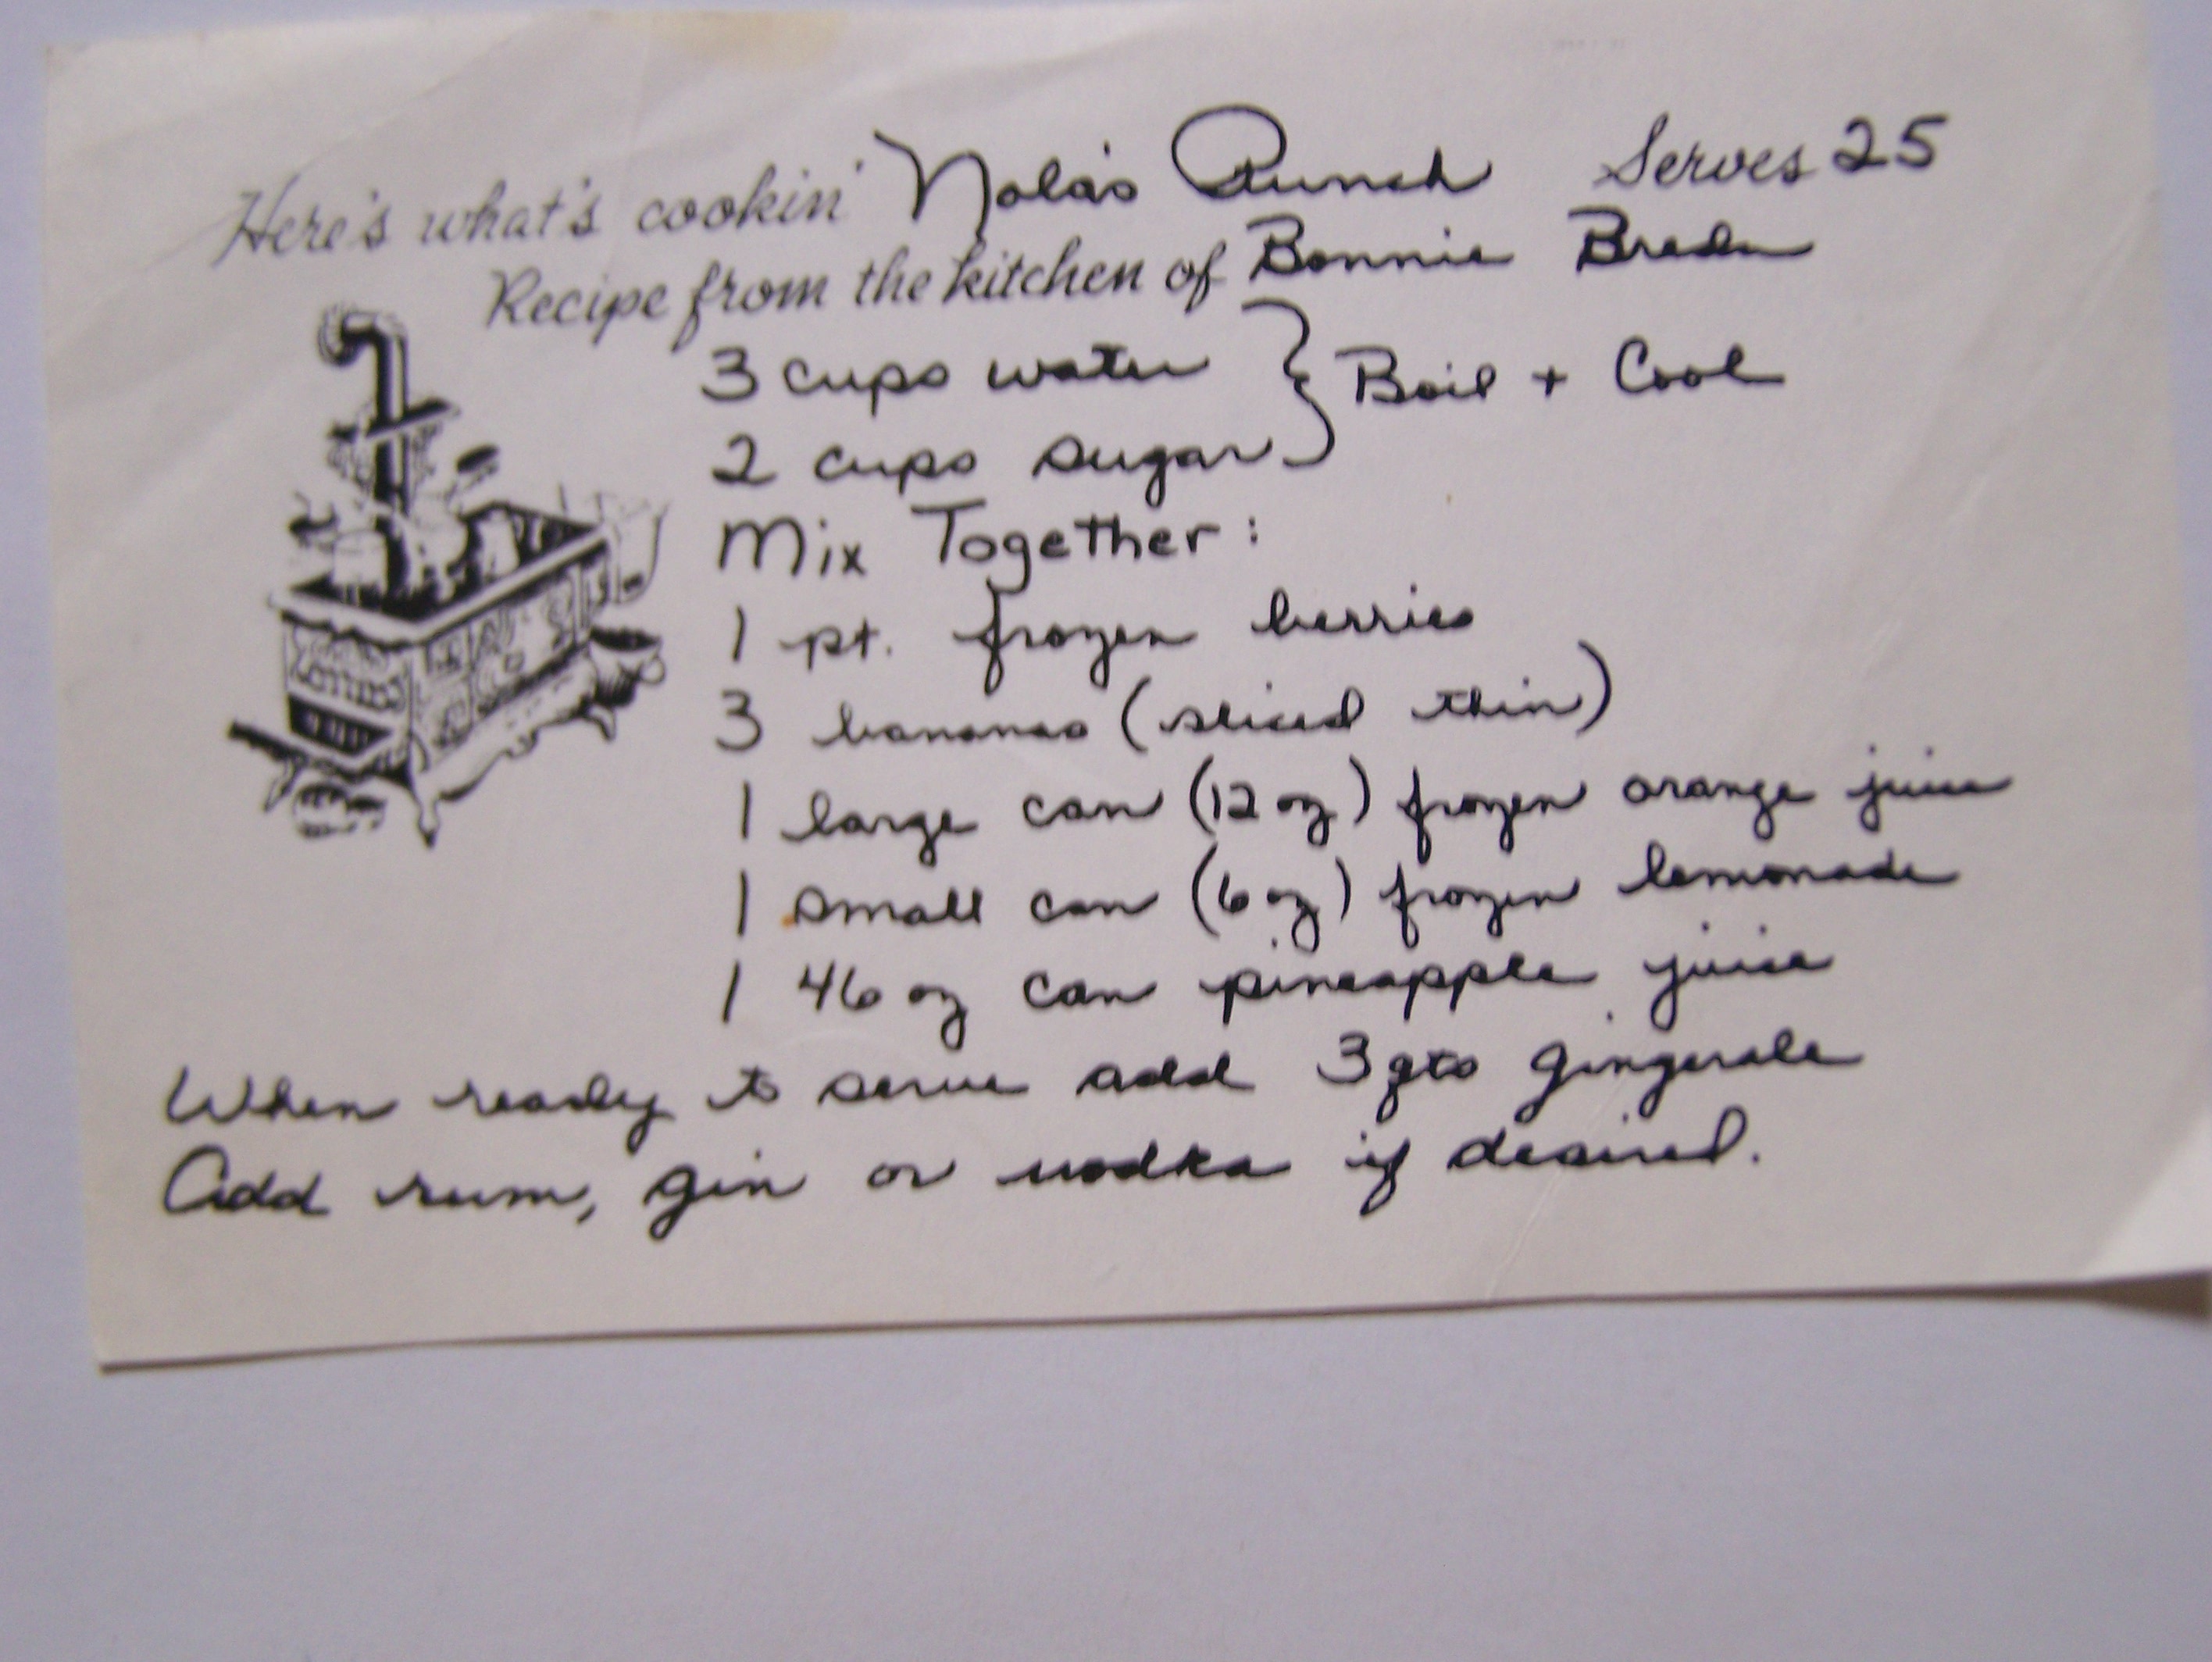 Here's what's cookin' Nola's Punch Serves 25
Recipe from the kitchen of Bonnie
3 cups water } Boil + Cool
2 cups sugar
Mix Together:
1 pt. frozen berries
3 bananas (sliced thin)
1 large can (12 oz) frozen orange juice
1 small can (6 oz) frozen lemonade
1 46 oz can pineapple juice
When ready to serve add 3 qts gingerale
Add rum, gin or vodka if desired.